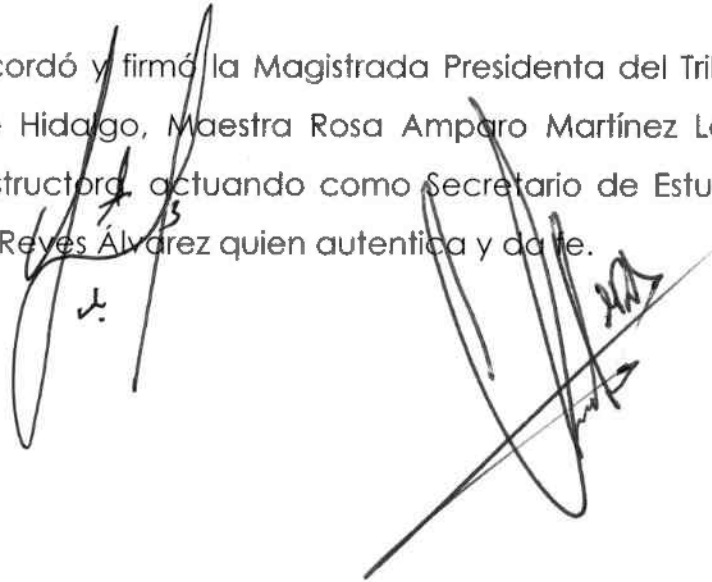 cordó y firmó la Magistrada Presidenta del Tri
Hidalgo, Maestra Rosa Amparo Martínez L
structora, actuando como Secretario de Estu
Reyes Álvarez quien autentica y da fe.